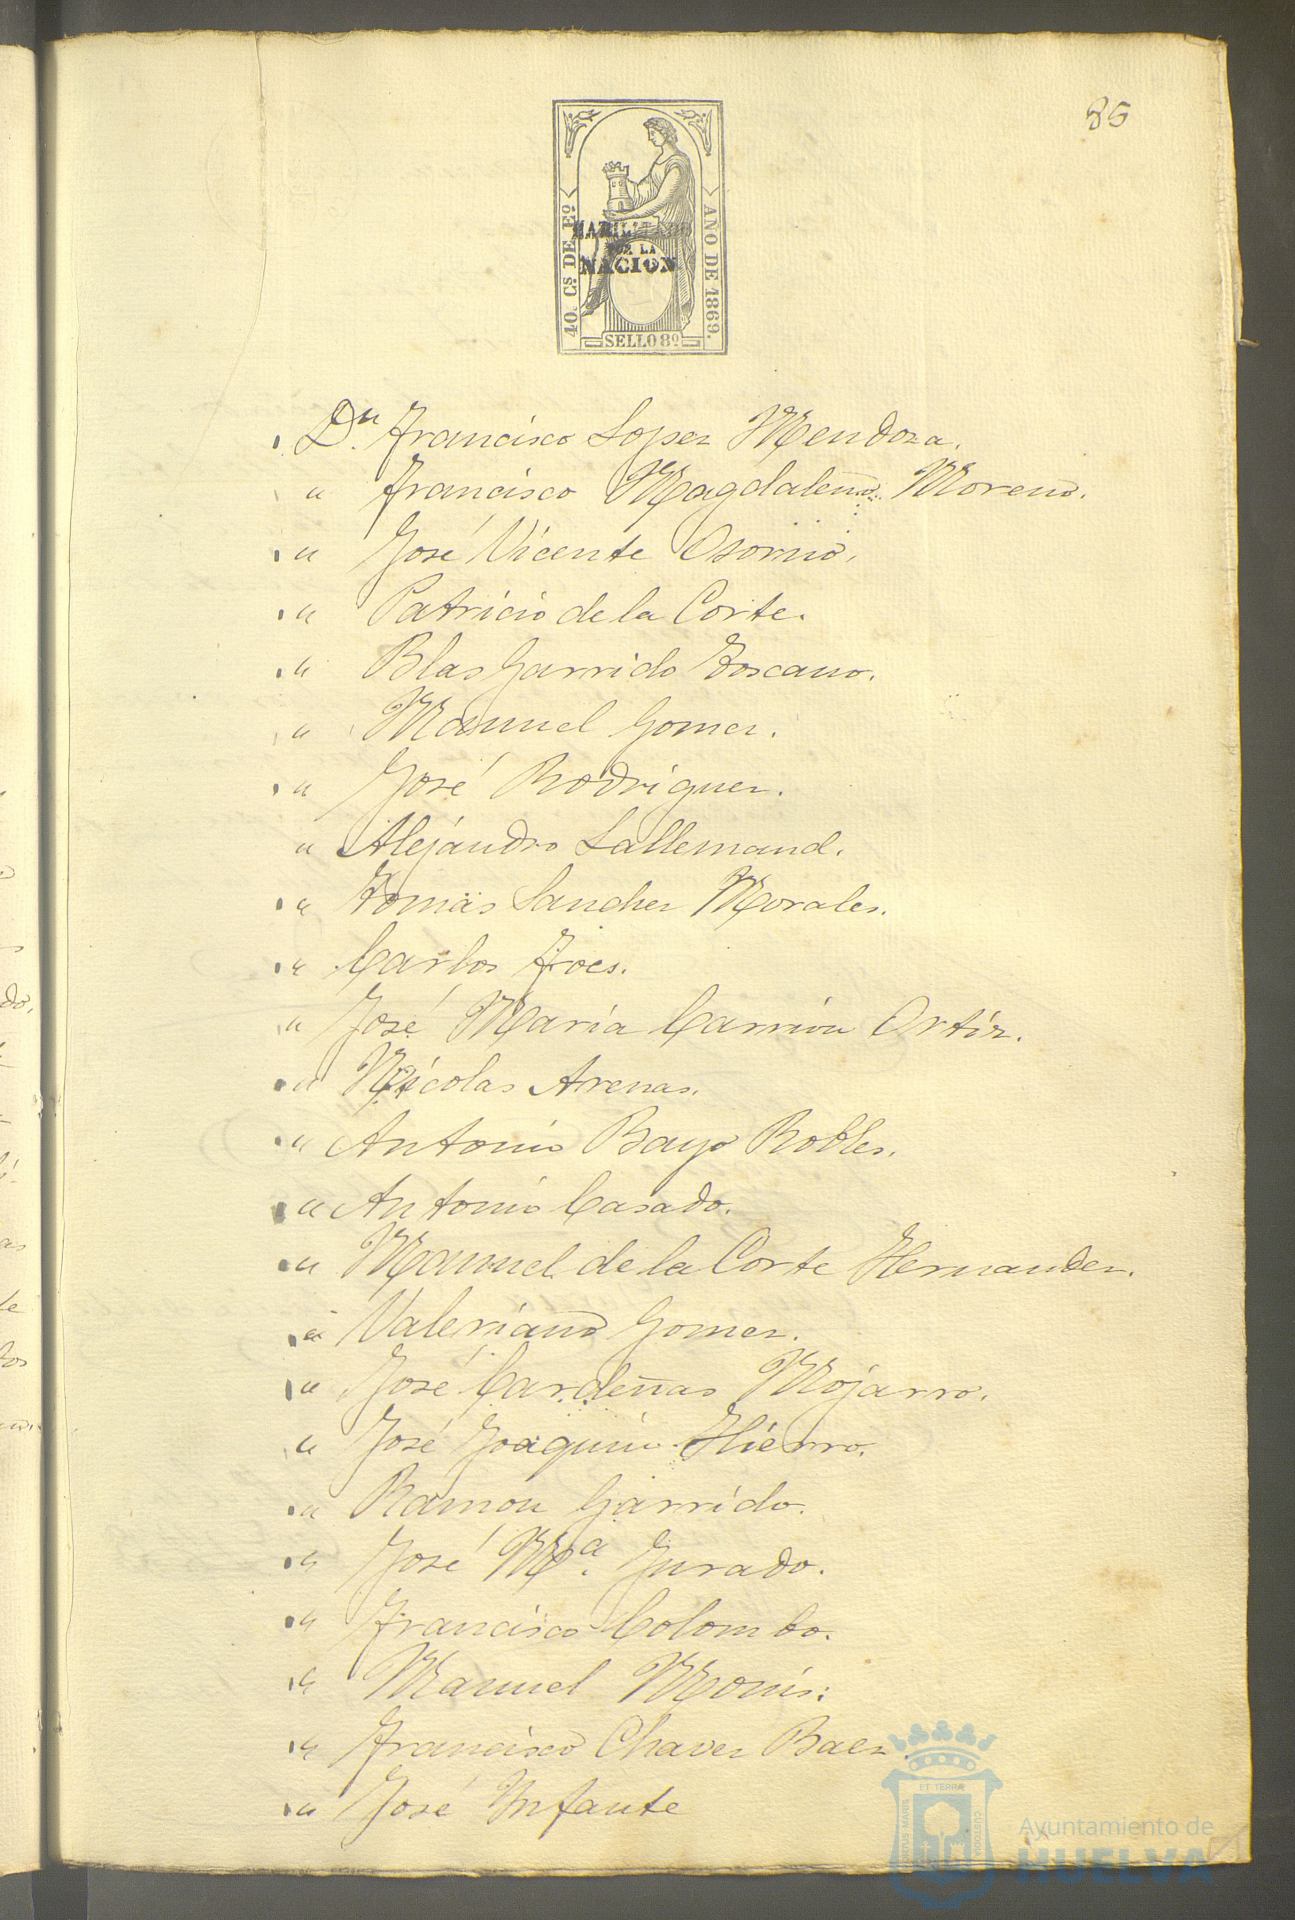 85
40. Cs. DE Eº
AÑO DE 1869.
HABILITADO
POR LA
NACION
SELLO 8º
Dn. Francisco Lopez Mendoza.
" Francisco Magdaleno Moreno.
" José Vicente Osorno.
" Patricio de la Corte.
" Blas Garrido Toscano.
" Manuel Gomez.
" José Rodriguez.
" Alejandro Lallemand.
" Tomás Sanchez Morales.
" Carlos Froes.
" José María Carrion Ortíz.
" Nicolas Arenas.
" Antonio Bayo Robles.
" Antonio Casado.
" Manuel de la Corte Hernandez.
" Valeriano Gomez.
" José Cardeñas Mojarro.
" José Joaquin Hierro.
" Ramon Garrido.
" José Mª. Jurado.
" Francisco Colombo.
" Manuel Monis.
" Francisco Chavez Baez.
" José Infante
ET TERRÆ
PORTUS MARIS
CUSTODIA
Ayuntamiento de
HUELVA